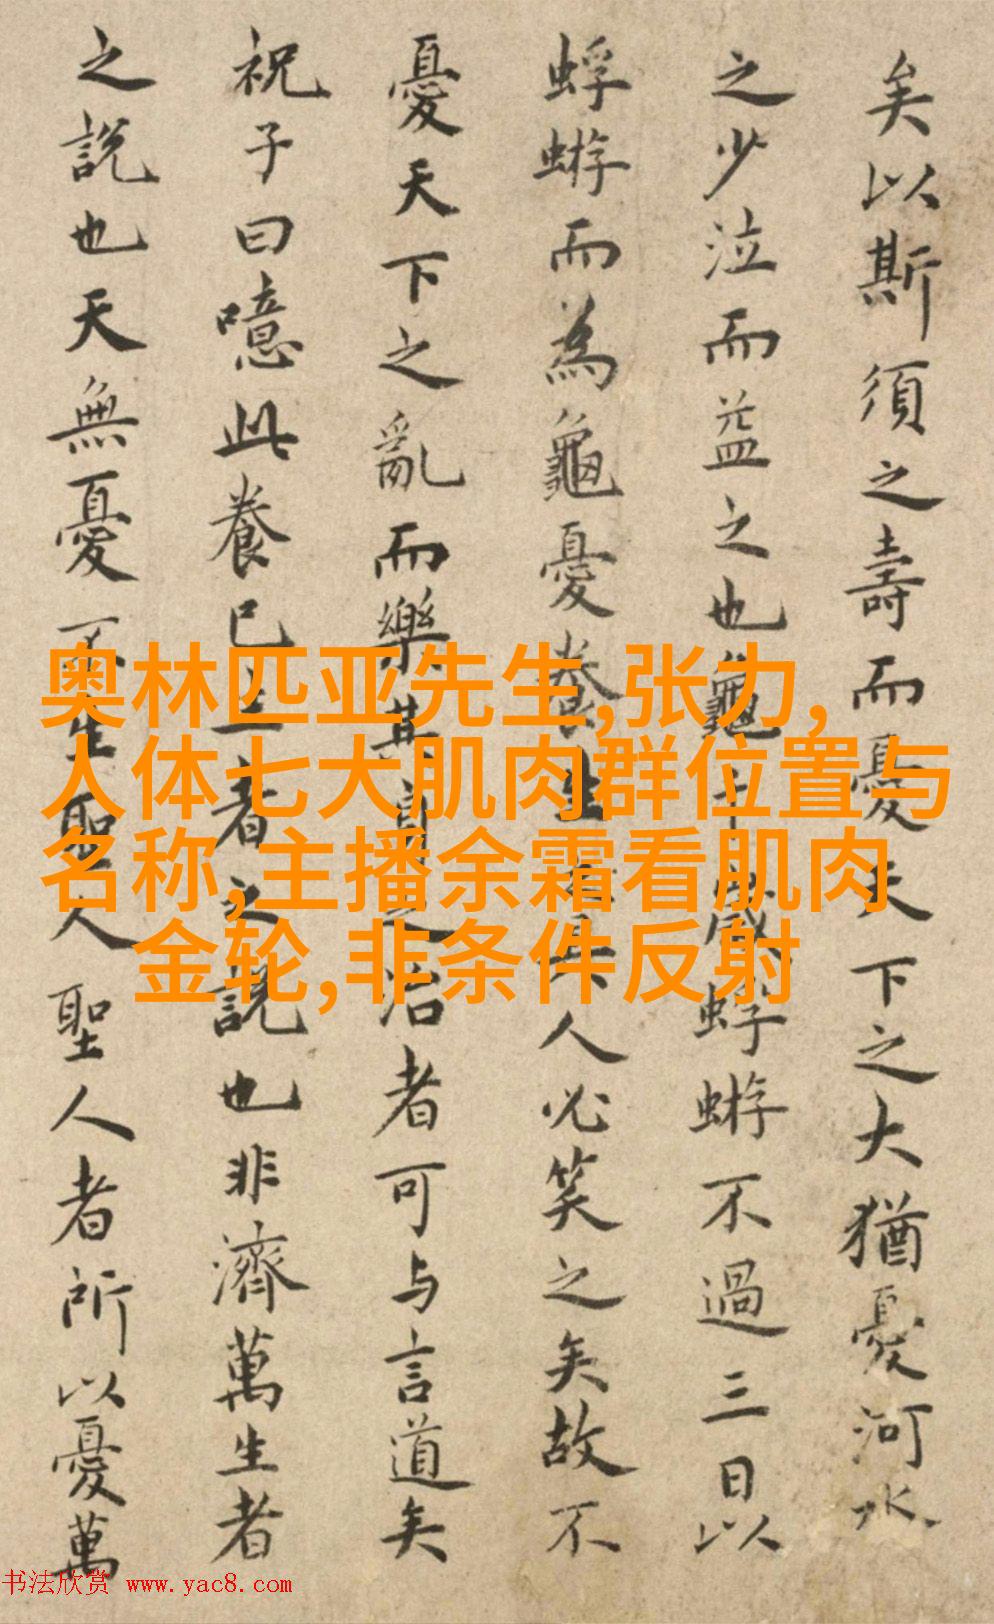 矣以斯須之壽而憂天下之大猶憂河水
之少泣而益之也龜千歲蜉蝣不過三日以
蜉蝣而為龜憂養生之具人必笑之矣故不
憂天下之亂而樂其身之治者可与言道矣
祝子曰噫此養已上者之說也非濟萬生者
之說也天無憂不生聖人聖人者所以憂萬
奥林匹亚先生,张力,
人体七大肌肉群位置与
名称,主播余霜看肌肉
金轮,非条件反射
书法欣赏 www.yac8.com